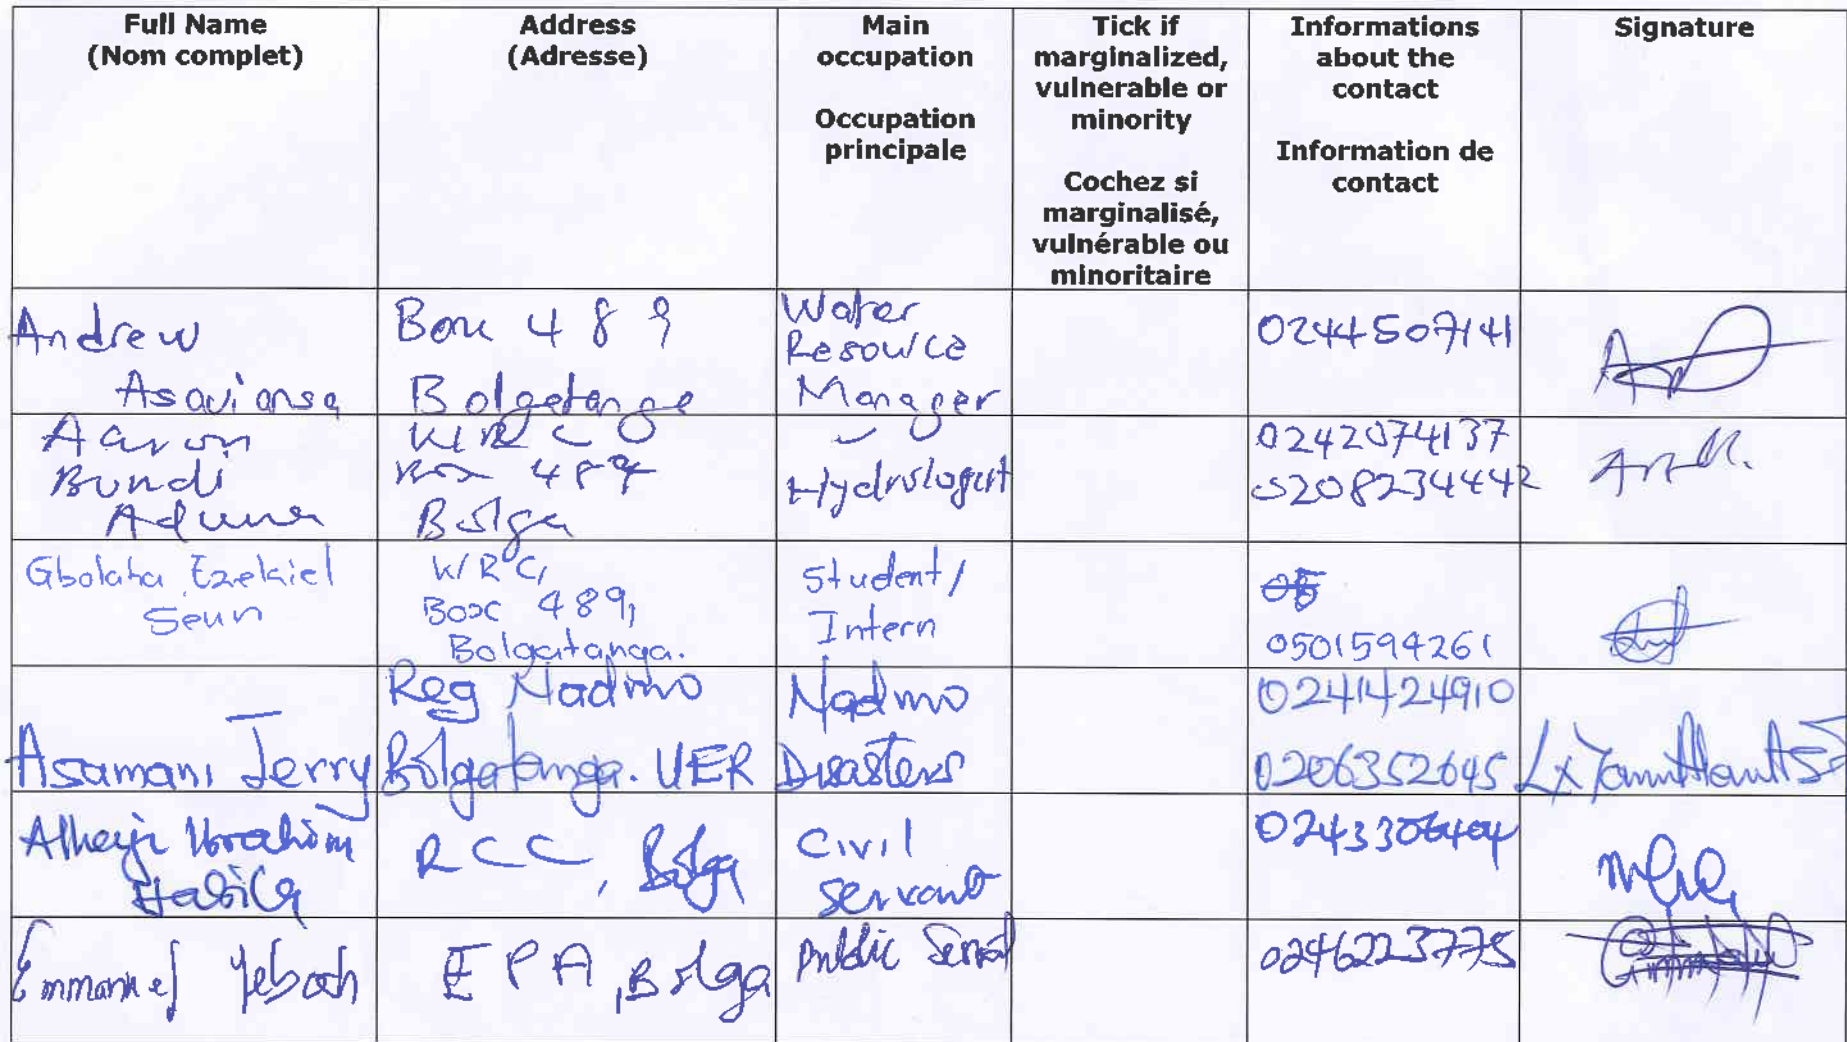 Full Name
(Nom complet)
Address
(Adresse)
Main
occupation
Occupation
principale
Tick if
marginalized,
vulnerable or
minority
Cochez si
marginalisé,
vulnérable ou
minoritaire
Informations
about the
contact
Information de
contact
Signature
Andrew
Asaviansa
Box 489
Bolgatanga
Water
Resource
Manager
0244507141
Aaron
Bundi
Aduna
WRC
Box 489
Bolga
Hydrologist
0242074137
0208234442
Gbolaha Ezekiel
Seun
WRC,
Box 489,
Bolgatanga.
Student/
Intern
0501594261
Asamani Jerry
Reg Nadmo
Bolgatanga. UER
Nadmo
Disasters
0241424910
0206352645
Alhaji Ibrahim
Habila
RCC, Bolga
Civil
Servant
Emmanuel Yeboah
EPA, Bolga
Public Servant
0246223775